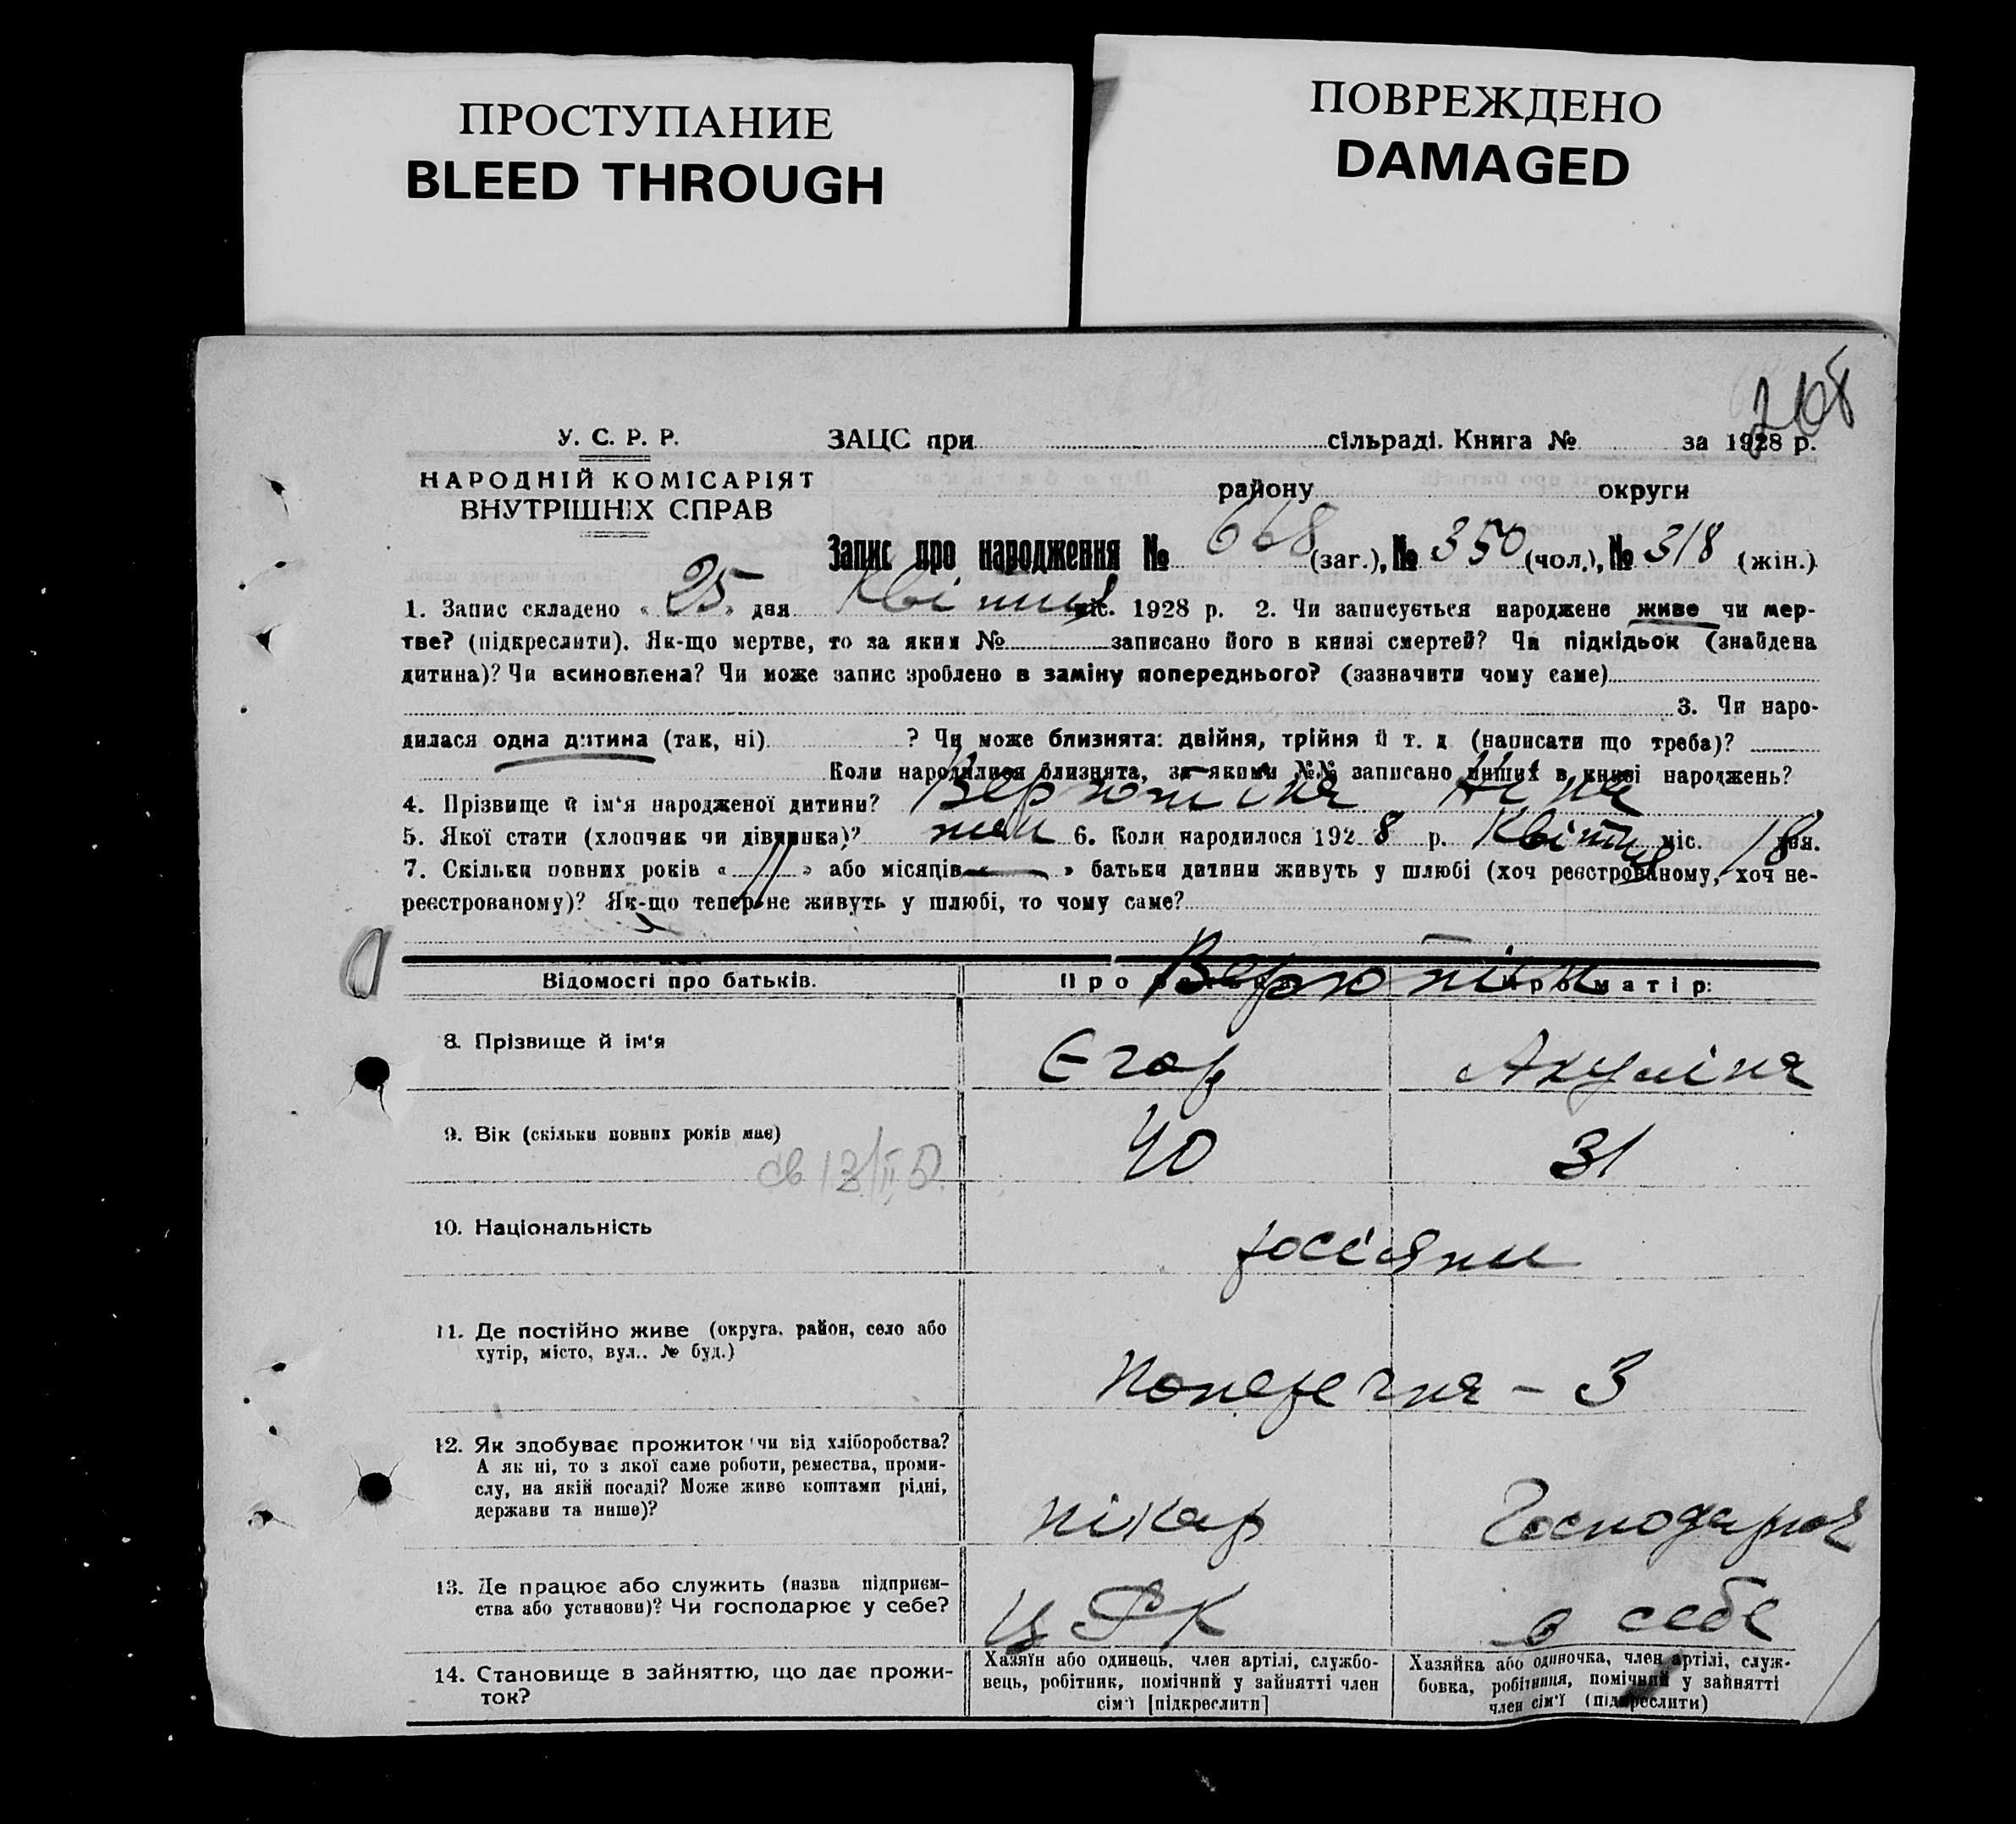 ПРОСТУПАНИЕ
BLEED THROUGH
ПОВРЕЖДЕНО
DAMAGED
268
У. С. Р. Р.
НАРОДНІЙ КОМІСАРІЯТ
ВНУТРІШНІХ СПРАВ
ЗАЦС при сільраді. Книга № за 1928 р.
району округи
Запис про народження № 668 (заг.), № 350 (чол.), № 318 (жін.)
1. Запис складено « 25 » дня Квітня міс. 1928 р. 2. Чи записується народжене живе чи мер-
тве? (підкреслити). Як-що мертве, то за яким № записано його в книзі смертей? Чи підкідьок (знайдена
дитина)? Чи всиновлена? Чи може запис зроблено в заміну попереднього? (зазначити чому саме)
3. Чи наро-
дилася одна дитина (так, ні) ? Чи може близнята: двійня, трійня й т. д. (написати що треба)?
Коли народилися близнята, за якими №№ записано инших в книзі народжень?
4. Прізвище й ім'я народженої дитини? Верютіна Ніна
5. Якої стати (хлопчик чи дівчинка)? 6. Коли народилося 1928 р. Квітня міс. 18 дня.
7. Скільки повних років « 11 » або місяців « — » батьки дитини живуть у шлюбі (хоч реєстрованому, хоч не-
реєстрованому)? Як-що тепер не живуть у шлюбі, то чому саме?
Відомості про батьків. Про батька: Про матір:
Верютіни
8. Прізвище й ім'я Єгор Акуліна
9. Вік (скільки повних років має) 40 31
10. Національність росіяни
11. Де постійно живе (округа, район, село або
хутір, місто, вул., № буд.)
Поперечня - 3
12. Як здобуває прожиток чи від хліборобства?
А як ні, то з якої саме роботи, ремества, проми-
слу, на якій посаді? Може живе коштами рідні,
держави та инше)?
пікар Господарює
13. Де працює або служить (назва підприєм-
ства або установи)? Чи господарює у себе?
ЦРК в себе
14. Становище в зайняттю, що дає прожи-
ток?
Хазяїн або одинець, член артілі, службо-
вець, робітник, помічний у зайнятті член
сім'ї [підкреслити]
Хазяйка або одиночка, член артілі, служ-
бовка, робітниця, помічний у зайнятті
член сім'ї (підкреслити)